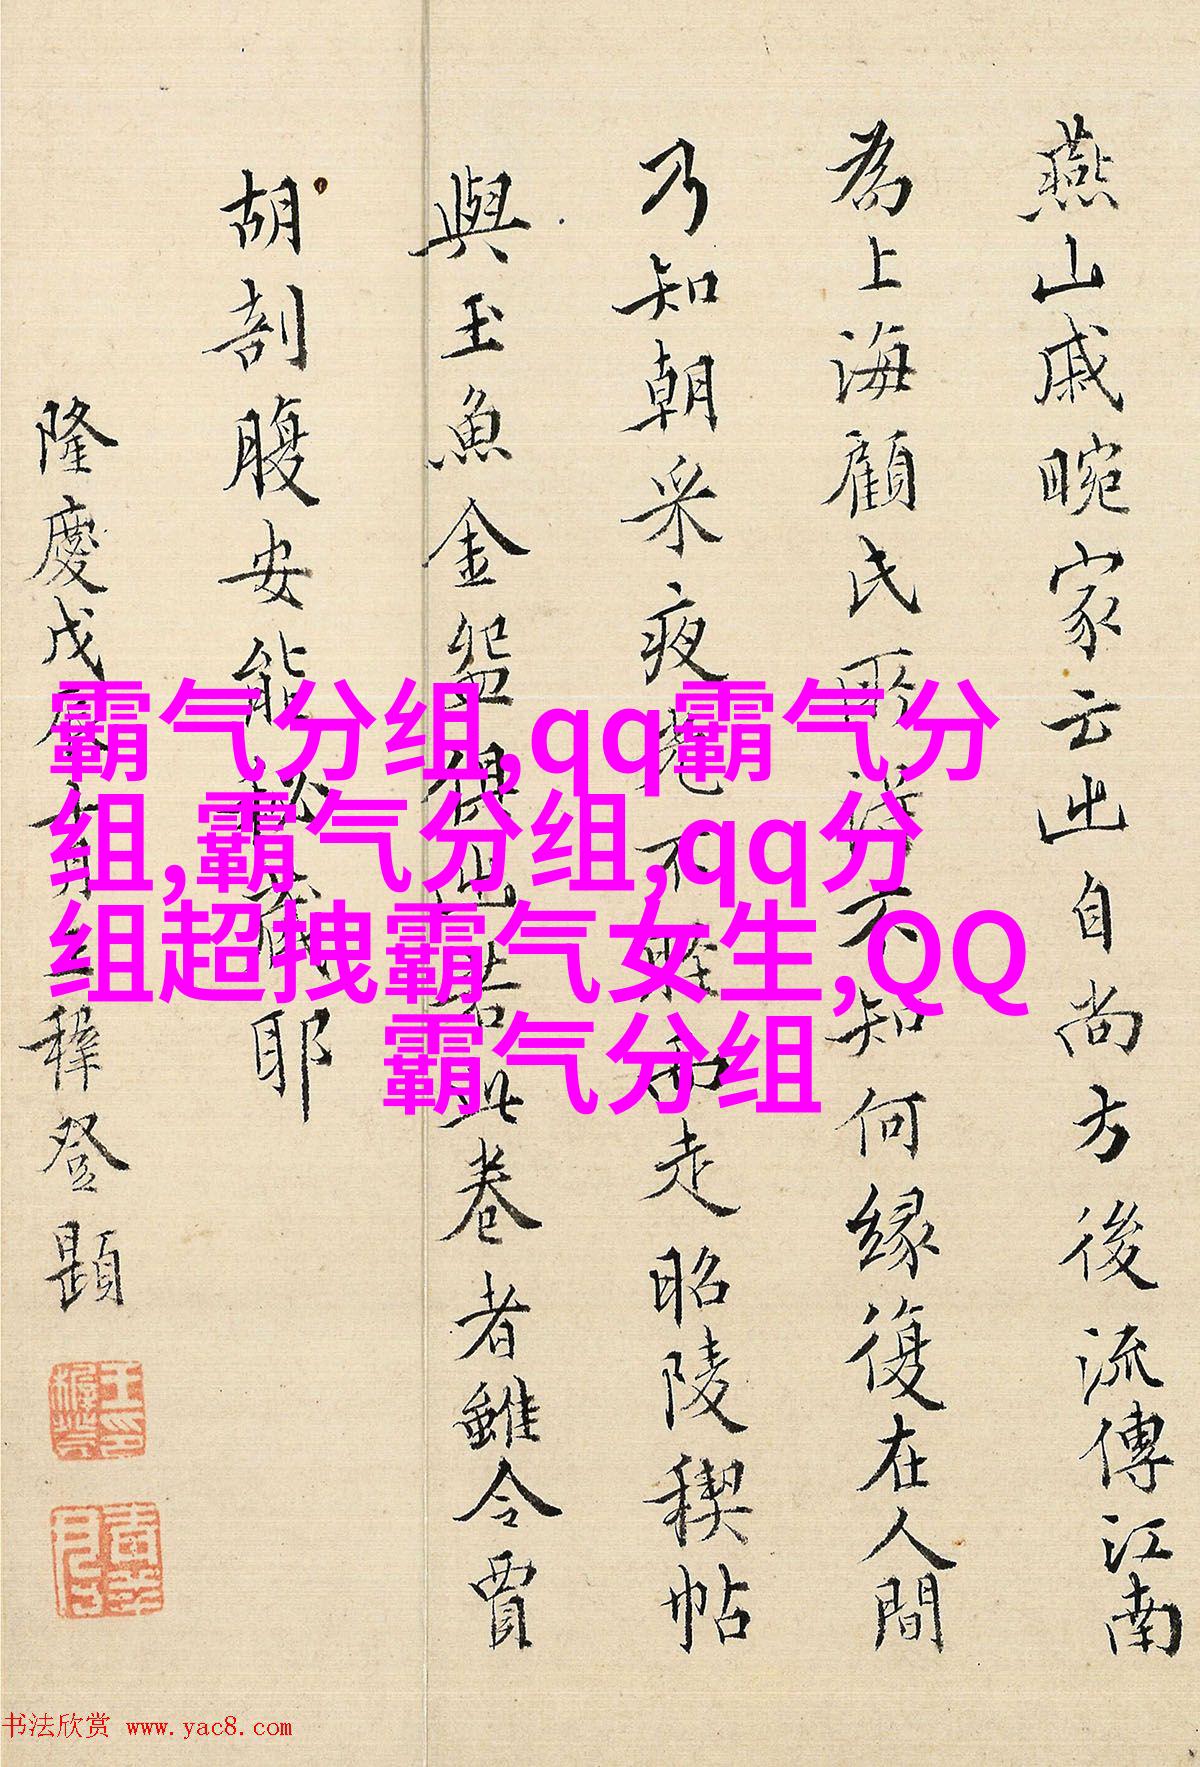 燕山戚畹家云出自尚方後流傳江南
為上海顧氏所 不知何緣復在人間
乃知朝采夜 不 而走昭陵稧帖
與玉魚金盌 也若此卷者雖令賈
胡剖腹安能 藏耶
隆慶戊辰 月王穉登題
霸气分组,qq霸气分
组,霸气分组,qq分
组超拽霸气女生,QQ
霸气分组
书法欣赏 www.yac8.com